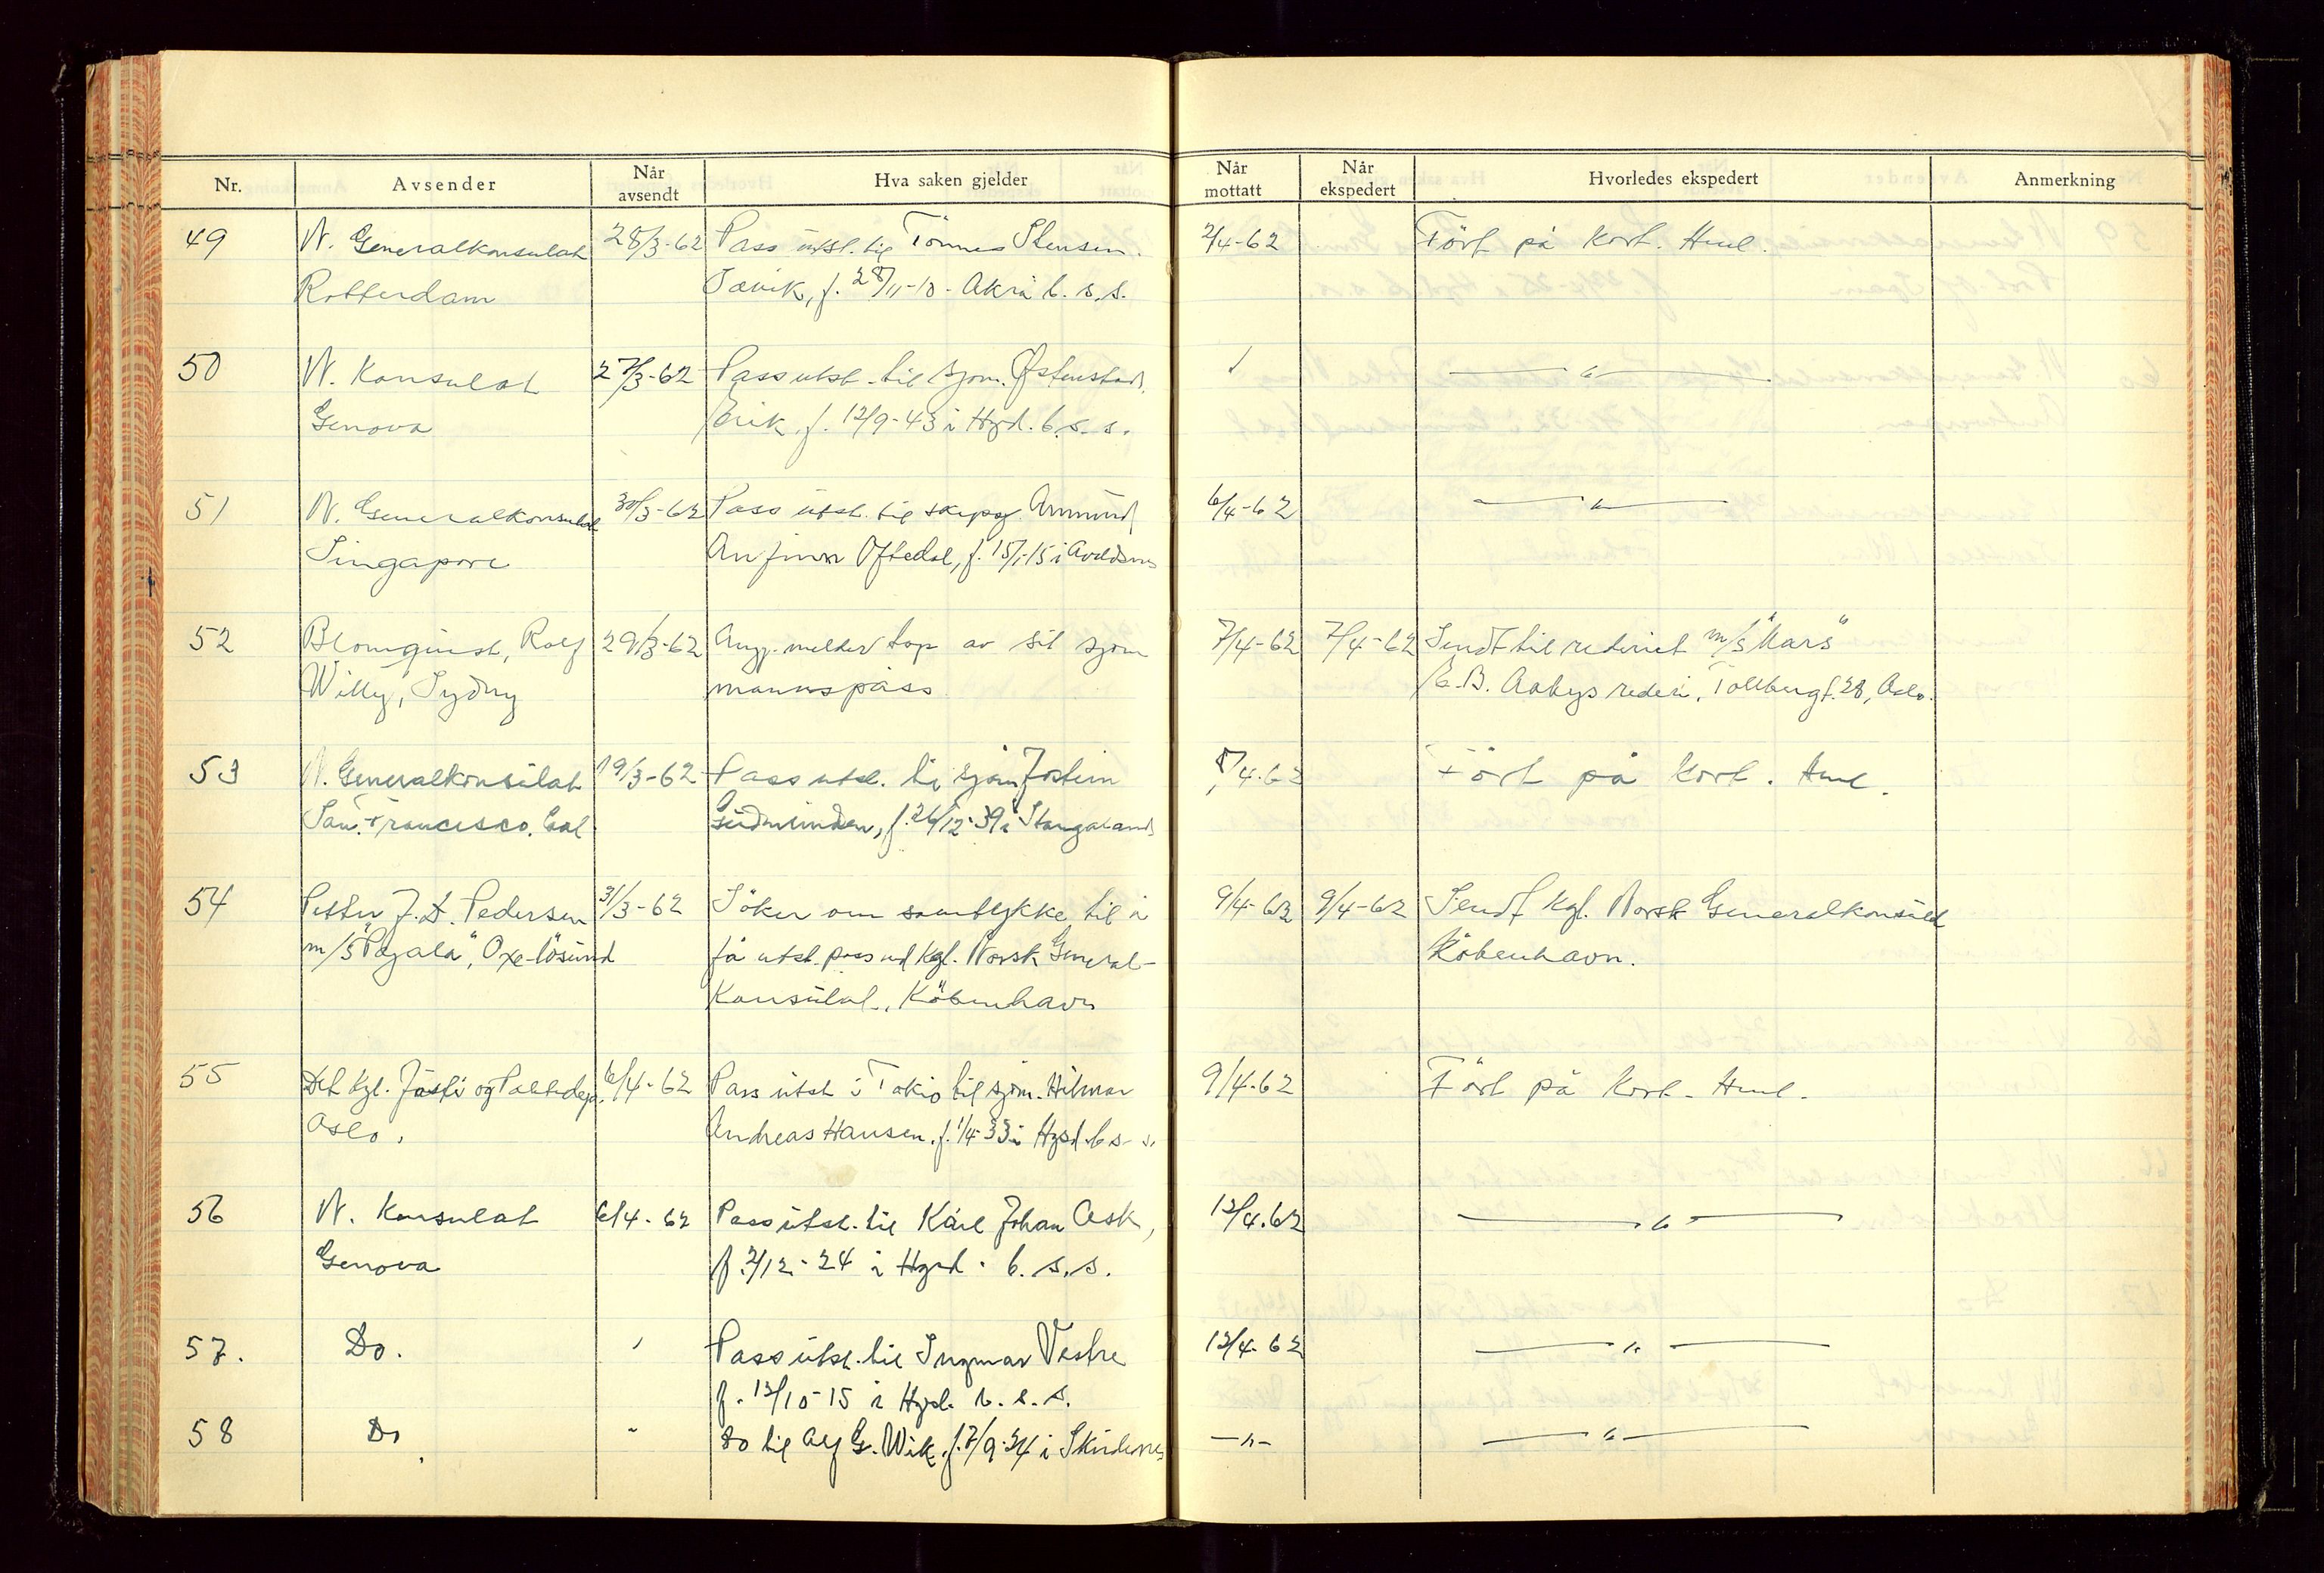 Nr. Avsender Når avsendt Hva saken gjelder Når mottatt Når ekspedert Hvorledes ekspedert Anmerkning
49 N. Generalkonsulat 28/3-62 Pass utst. til Tönnes Stensen 2/4-62 Fört på kort. Hml.
Rotterdam Sævik, f. 28/11-10 - Åkra b. s. s.
50 N. Konsulat 27/3-62 Pass utst. til sjöm. Østenstad, — " —
Genova Erik, f. 12/9-43 i Hgsd. b. s. s.
51 N. Generalkonsulat 30/3-62 Pass utst. til skipsf. Ammund 6/4-62 — " —
Singapore Anfinn Oftedal, f. 15/1-15 i Avaldsnes
52 Blomquist, Rolf 29/3-62 Ang. melder tap av sit sjöm 7/4-62 7/4-62 Sendt til rederiet m/s "Mars"
Willy, Sydny mannspass E. B. Aabys rederi, Tollbugt. 28, Oslo.
53 N. Generalkonsulat 19/3-62 Pass utst. til sjöm Jostein 4-62 Fört på kort. Hml.
San. Francesco. Cal Gudmundsen, f. 26/12-39 i Stangaland
54 Petter J. D. Pedersen 31/3-62 Söker om samtykke til å 9/4-62 9/4-62 Sendt Kgl. Norsk Generalkonsulat
m/s "Pajala", Oxe-lösund få utst. pass ved Kgl. Norsk General- Köbenhavn.
Konsulat, Köbenhavn
55 Det Kgl. Justis og Politidep. 6/4-62 Pass utst. i Tokio til sjöm. Hilmar 9/4-62 Fört på Kort. Hml.
Oslo. Andreas Hansen, f. 1/4-33 i Hgsd. b. s. s.
56 N. Konsulat 6/4-62 Pass utst. til Kåre Johan Ask, 12/4-62 — " —
Genova f. 2/12-24 i Hgsd. b. s. s.
57. Do. Pass utst. til Ingmar Vestre 12/4-62 — " —
f. 12/10-15 i Hgsd. b. s. s.
58 Do " do til Alf G. Wik, f. 7/9-34 i Skudenes — " — — " —